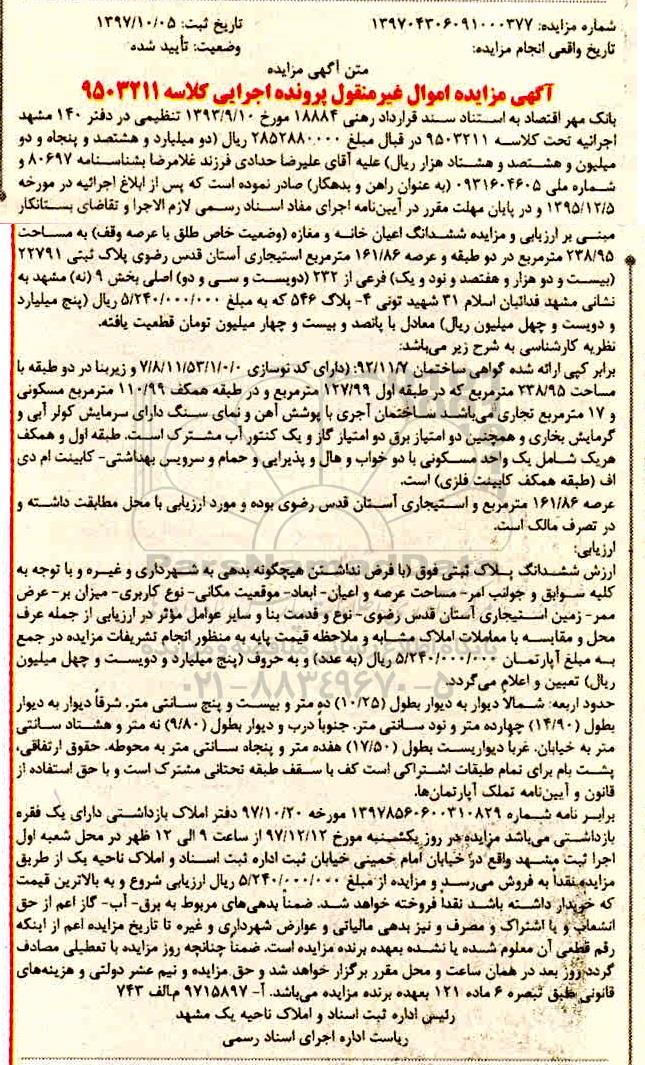 شماره مزایده: ۱۳۹۷۰۴۳۰۶۰۹۱۰۰۰۳۷۷ تاریخ ثبت: ۱۳۹۷/۱۰/۰۵
تاریخ واقعی انجام مزایده: وضعیت: تأیید شده
متن آگهی مزایده
آگهی مزایده اموال غیرمنقول پرونده اجرایی کلاسه ۹۵۰۳۲۱۱
بانک مهر اقتصاد به استناد سند قرارداد رهنی ۱۸۸۸۴ مورخ ۱۳۹۳/۹/۱۰ تنظیمی در دفتر ۱۴۰ مشهد
اجرائیه تحت کلاسه ۹۵۰۳۲۱۱ در قبال مبلغ ۲۸۵۲۸۸۰,۰۰۰ ریال (دو میلیارد و هشتصد و پنجاه و دو
میلیون و هشتصد و هشتاد هزار ریال) علیه آقای علیرضا حدادی فرزند غلامرضا بشناسنامه ۸۰۶۹۷ و
شماره ملی ۰۹۳۱۶۰۴۶۰۵ (به عنوان راهن و بدهکار) صادر نموده است که پس از ابلاغ اجرائیه در مورخه
۱۳۹۵/۱۲/۵ و در پایان مهلت مقرر در آیین‌نامه اجرای مفاد اسناد رسمی لازم الاجرا و تقاضای بستانکار
مبنی بر ارزیابی و مزایده ششدانگ اعیان خانه و مغازه (وضعیت خاص طلق با عرصه وقف) به مساحت
۲۳۸/۹۵ مترمربع در دو طبقه و عرصه ۱۶۱/۸۶ مترمربع استیجاری آستان قدس رضوی پلاک ثبتی ۲۲۷۹۱
(بیست و دو هزار و هفتصد و نود و یک) فرعی از ۲۳۲ (دویست و سی و دو) اصلی بخش ۹ (نه) مشهد به
نشانی مشهد فدائیان اسلام ۳۱ شهید تونی ۴- پلاک ۵۴۶ که به مبلغ ۵/۲۴۰/۰۰۰/۰۰۰ ریال (پنج میلیارد
و دویست و چهل میلیون ریال) معادل با پانصد و بیست و چهار میلیون تومان قطعیت یافته.
نظریه کارشناسی به شرح زیر می‌باشد:
برابر کپی ارائه شده گواهی ساختمان ۹۲/۱۱/۷: (دارای کد نوسازی ۷/۸/۱۱/۵۳/۱/۰/۰ و زیربنا در دو طبقه با
مساحت ۲۳۸/۹۵ مترمربع که در طبقه اول ۱۲۷/۹۹ مترمربع و در طبقه همکف ۱۱۰/۹۹ مترمربع مسکونی
و ۱۷ مترمربع تجاری می‌باشد ساختمان آجری با پوشش آهن و نمای سنگ دارای سرمایش کولر آبی و
گرمایش بخاری و همچنین دو امتیاز برق دو امتیاز گاز و یک کنتور آب مشترک است. طبقه اول و همکف
هریک شامل یک واحد مسکونی با دو خواب و هال و پذیرایی و حمام و سرویس بهداشتی- کابینت ام دی
اف (طبقه همکف کابینت فلزی) است.
عرصه ۱۶۱/۸۶ مترمربع و استیجاری آستان قدس رضوی بوده و مورد ارزیابی با محل مطابقت داشته و
در تصرف مالک است.
ارزیابی:
ارزش ششدانگ پلاک ثبتی فوق (با فرض نداشتن هیچگونه بدهی به شهرداری و غیره و با توجه به
کلیه سوابق و جوانب امر- مساحت عرصه و اعیان- ابعاد- موقعیت مکانی- نوع کاربری- میزان بر- عرض
ممر- زمین استیجاری آستان قدس رضوی- نوع و قدمت بنا و سایر عوامل مؤثر در ارزیابی از جمله عرف
محل و مقایسه با معاملات املاک مشابه و ملاحظه قیمت پایه به منظور انجام تشریفات مزایده در جمع
به مبلغ آپارتمان ۵/۲۴۰/۰۰۰/۰۰۰ ریال (به عدد) و به حروف (پنج میلیارد و دویست و چهل میلیون
ریال) تعیین و اعلام می‌گردد.
حدود اربعه: شمالا دیوار به دیوار بطول (۱۰/۲۵) ده متر و بیست و پنج سانتی متر. شرقاً دیوار به دیوار
بطول (۱۴/۹۰) چهارده متر و نود سانتی متر. جنوباً درب و دیوار بطول (۹/۸۰) نه متر و هشتاد سانتی
متر به خیابان. غربا دیواریست بطول (۱۷/۵۰) هفده متر و پنجاه سانتی متر به محوطه. حقوق ارتفاقی،
پشت بام برای تمام طبقات اشتراکی است کف با سقف طبقه تحتانی مشترک است و با حق استفاده از
قانون و آیین‌نامه تملک آپارتمان‌ها.
برابر نامه شماره ۱۳۹۷۸۵۶۰۶۰۰۳۱۰۸۲۹ مورخه ۹۷/۱۰/۲۰ دفتر املاک بازداشتی دارای یک فقره
بازداشتی می‌باشد مزایده در روز یکشنبه مورخ ۹۷/۱۲/۱۲ از ساعت ۹ الی ۱۲ ظهر در محل شعبه اول
اجرا ثبت مشهد واقع در خیابان امام خمینی خیابان ثبت اداره ثبت اسناد و املاک ناحیه یک از طریق
مزایده نقداً به فروش می‌رسد و مزایده از مبلغ ۵/۲۴۰/۰۰۰/۰۰۰ ریال ارزیابی شروع و به بالاترین قیمت
که خریدار داشته باشد نقدا فروخته خواهد شد. ضمناً بدهی‌های مربوط به برق- آب- گاز اعم از حق
انشعاب و یا اشتراک و مصرف و نیز بدهی مالیاتی و عوارض شهرداری و غیره تا تاریخ مزایده اعم از اینکه
رقم قطعی آن معلوم شده یا نشده بعهده برنده مزایده است. ضمناً چنانچه روز مزایده با تعطیلی مصادف
گردد روز بعد در همان ساعت و محل مقرر برگزار خواهد شد و حق مزایده و نیم عشر دولتی و هزینه‌های
قانونی طبق تبصره ۶ ماده ۱۲۱ بعهده برنده مزایده می‌باشد. آ- ۹۷۱۵۸۹۷ م.الف ۷۴۳
رئیس اداره ثبت اسناد و املاک ناحیه یک مشهد
ریاست اداره اجرای اسناد رسمی
۰۲۱-۸۸۳۴۹۶۷۰-۵